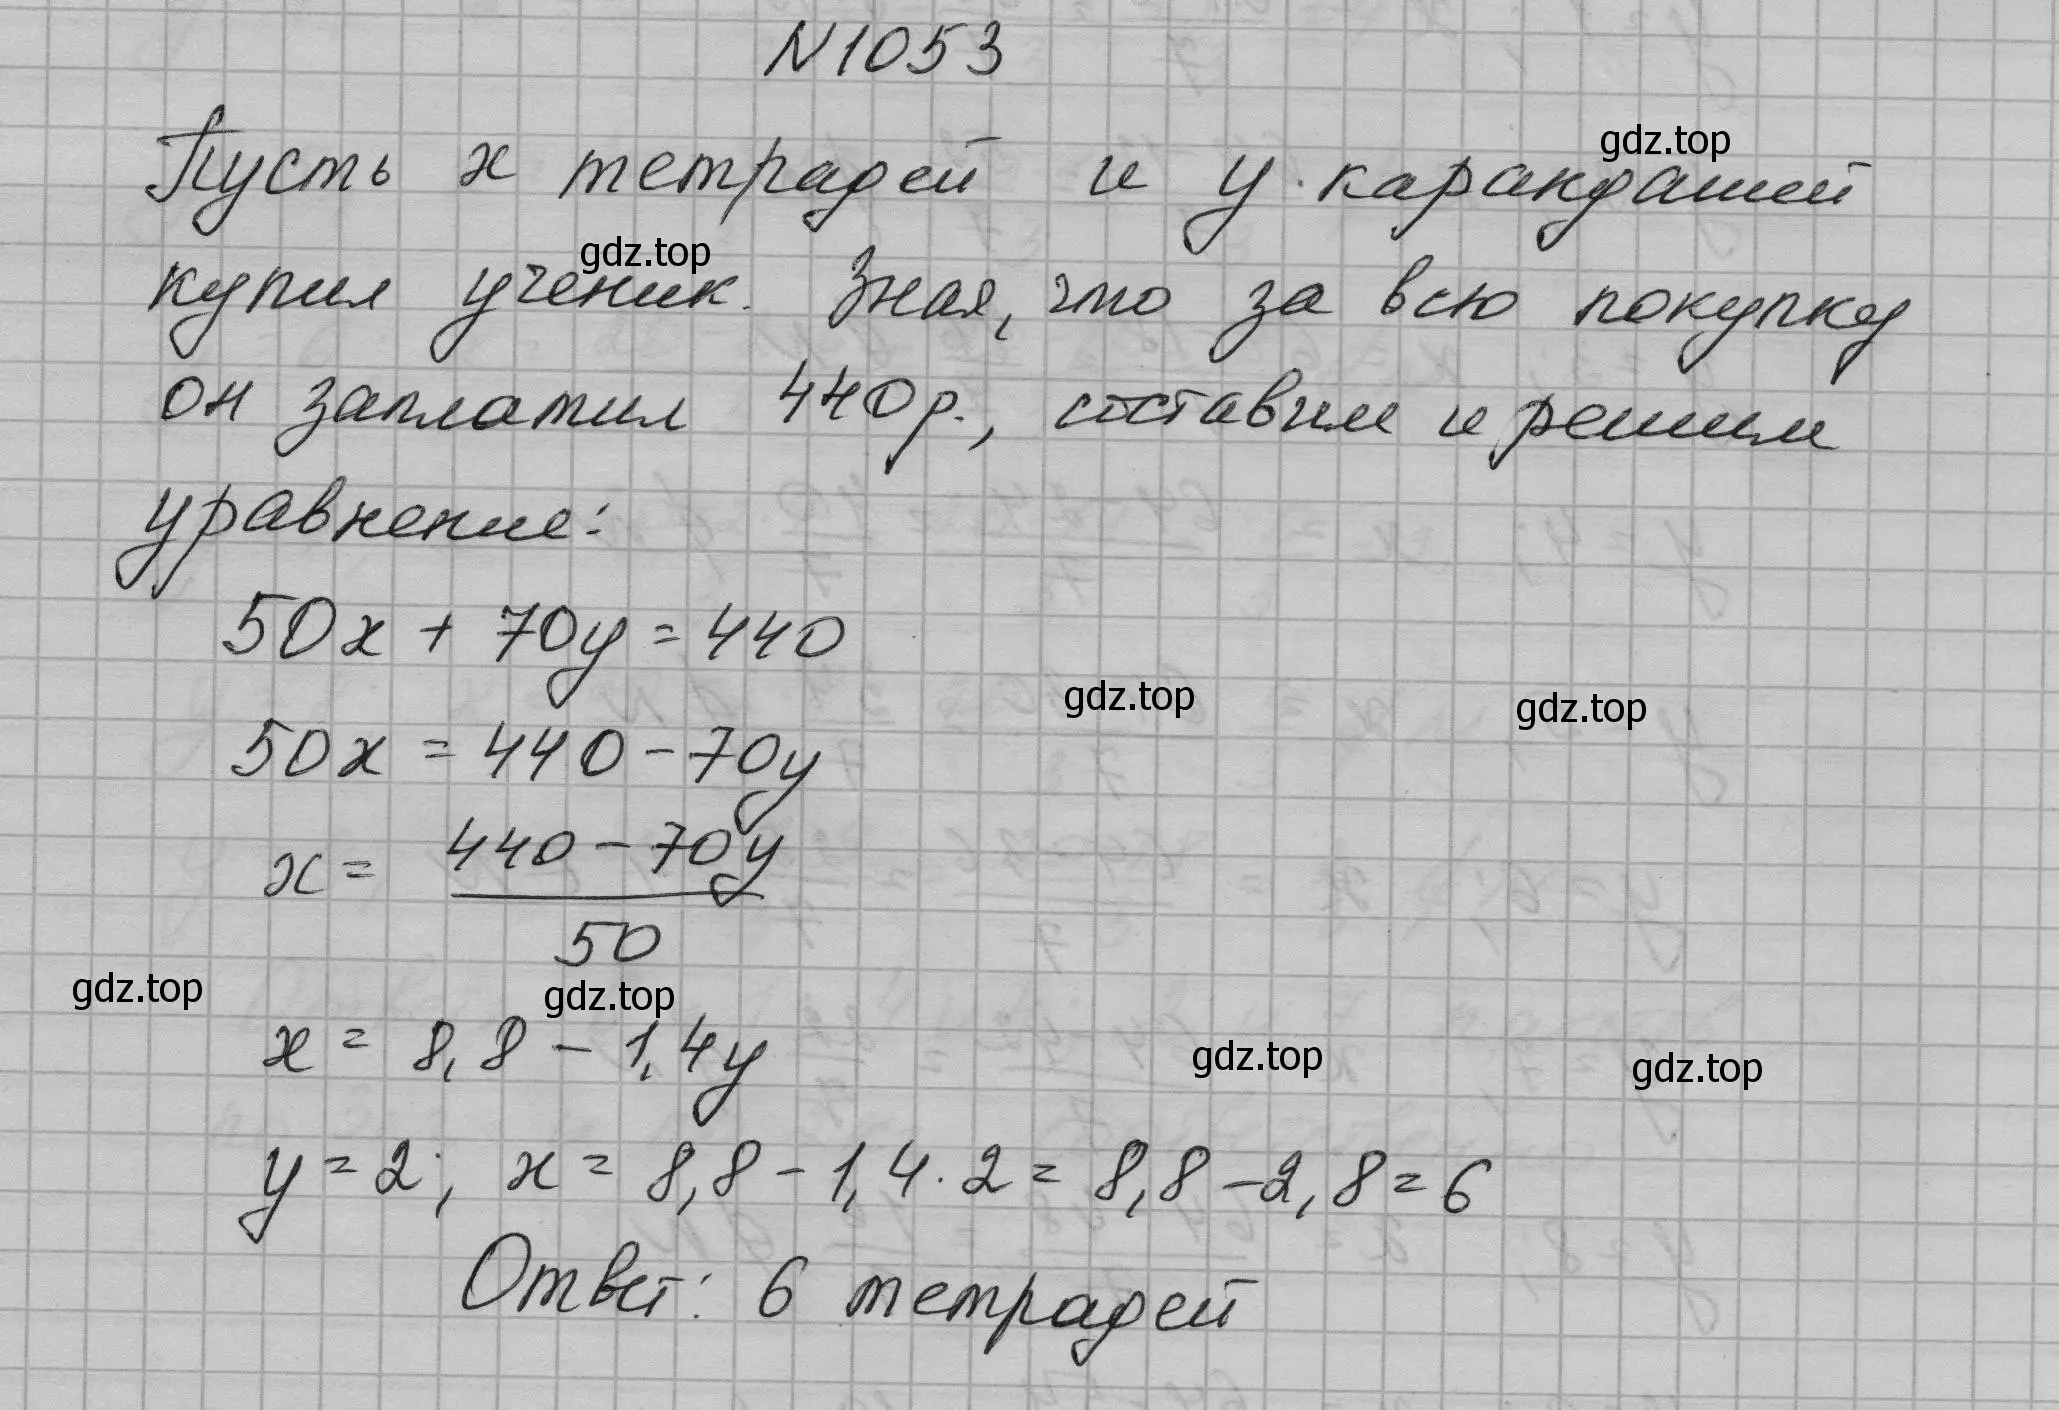 N 1053
gdz.top
Пусть x тетрадей и y карандашей
gdz.top
купил ученик. Зная, что за всю покупку
он заплатил 440 р., составим и решим
уравнение:
50x + 70y = 440
gdz.top
gdz.top
50x = 440 - 70y
x = 440 - 70y / 50
gdz.top
gdz.top
x = 8,8 - 1,4y
gdz.top
gdz.top
y = 2; x = 8,8 - 1,4 · 2 = 8,8 - 2,8 = 6
Ответ: 6 тетрадей